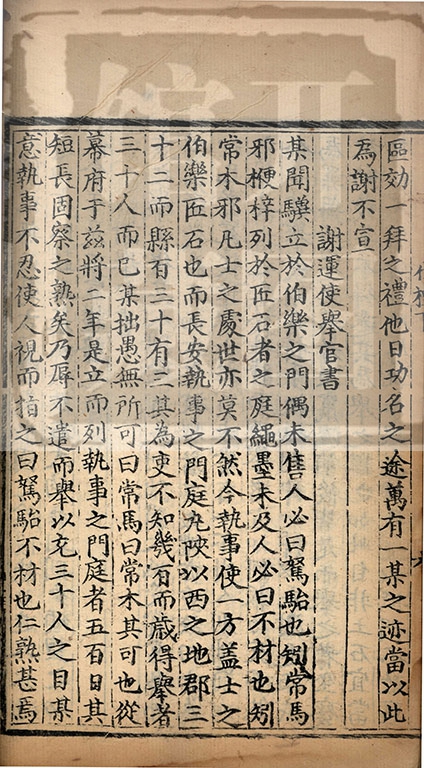 區効一拜之禮他日功名之途萬有一某之迹當以此
為謝不宣
謝運使舉官書
某聞驥立於伯樂之門偶未售人必曰駑駘也矧常馬
邪楩梓列於匠石者之庭繩墨未及人必曰不材也矧
常木邪凡士之處世亦莫不然今執事使一方盖士之
伯樂匠石也而長安執事之門庭凢陝以西之地郡三
十二而縣百三十有三其為吏不知幾百而歳得舉者
三十人而已某拙愚無所可曰常馬曰常木其可也從
幕府于兹將二年是立而列執事之門庭者五百日其
短長固察之熟矣乃辱不遣而舉以充三十人之目某
意執事不忍使人視而指之曰駑駘不材也仁熟甚焉